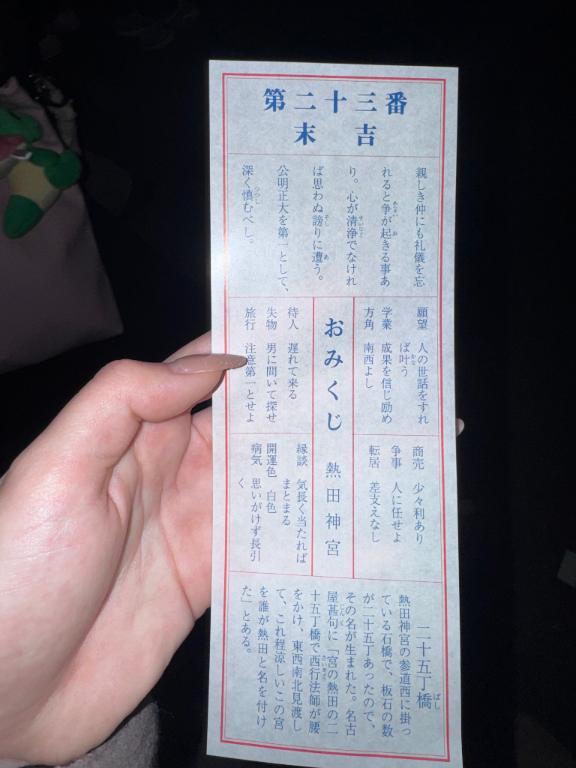 第二十三番
末吉
親しき仲にも礼儀を忘
れると争が起きる事あ
り。心が清浄でなけれ
ば思わぬ謗りに遭う。
公明正大を第一として、
深く慎むべし。
願望 人の世話をすれ
ば叶う
学業 成果を信じ励め
方角 南西よし
おみくじ 熱田神宮
待人 遅れて来る
失物 男に聞いて探せ
旅行 注意第一とせよ
商売 少々利あり
争事 人に任せよ
転居 差支えなし
縁談 気長く当たれば
まとまる
開運色 白色
病気 思いがけず長引
く
二十五丁橋
熱田神宮の参道西に掛っ
ている石橋で、板石の数
が二十五丁あったので、
その名が生まれた。名古
屋甚句に「宮の熱田の二
十五丁橋で西行法師が腰
をかけ、東西南北見渡し
て、これ程涼しいこの宮
を誰が熱田と名を付け
た」とある。